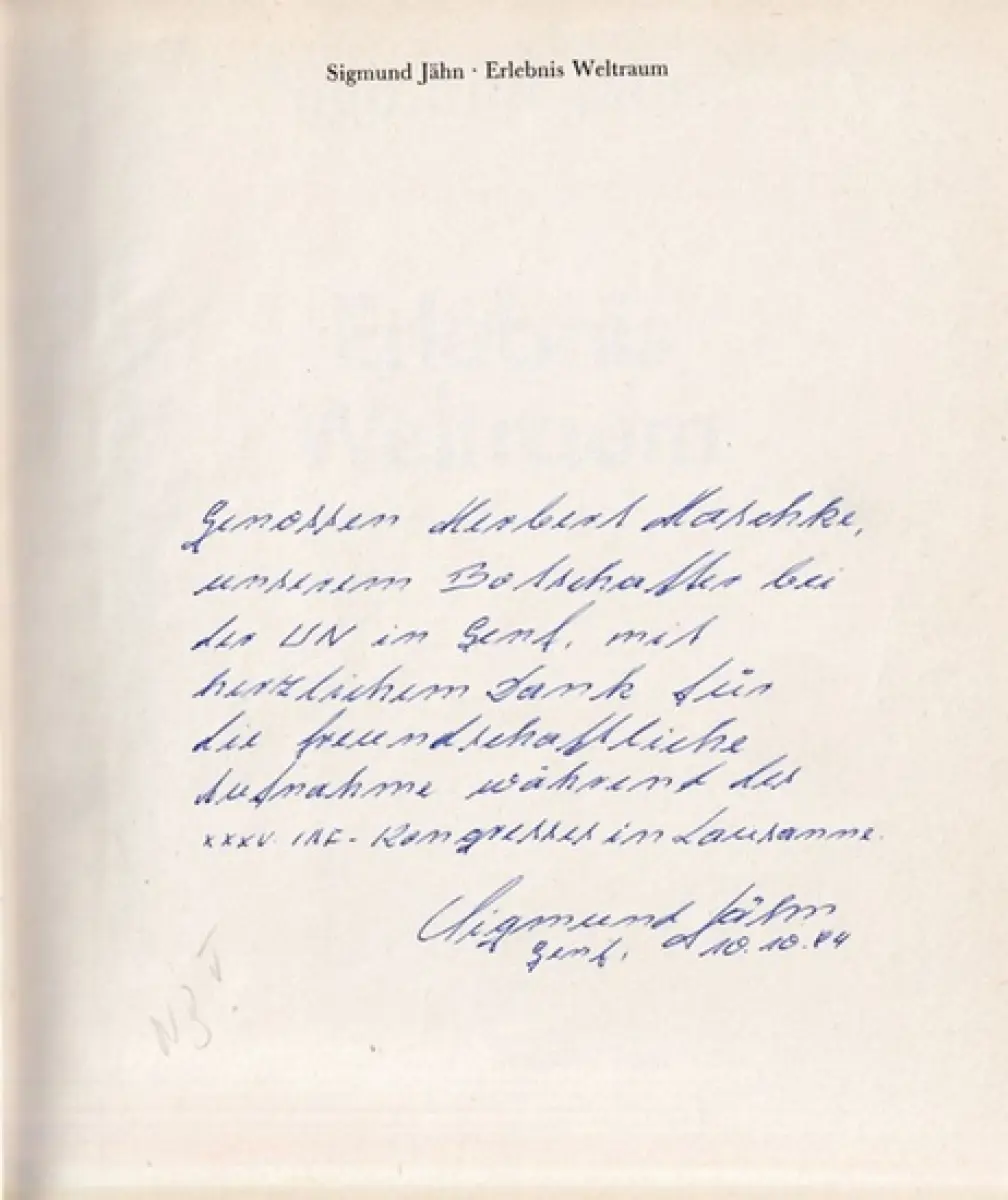 Sigmund Jähn · Erlebnis Weltraum
Genossen Herbert Maschke,
unserem Botschafter bei
der UN in Genf, mit
herzlichem Dank für
die freundschaftliche
Aufnahme während des
XXXV. IAF-Kongresses in Lausanne.
Sigmund Jähn
Genf, 10.10.84